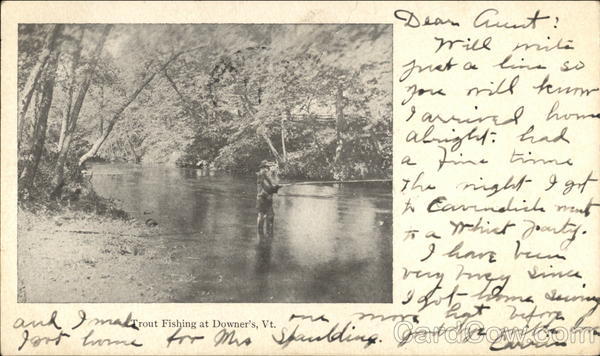 Dear Aunt:
Will write
just a line so
you will know
I arrived home
alright. had
a fine time
The night I got
to Cavendish went
to a Whist party.
I have been
very busy since
I got home sewing
Trout Fishing at Downer's, Vt.
and I made one more hat before
I got home for Mrs Spaulding.
CardCow.com